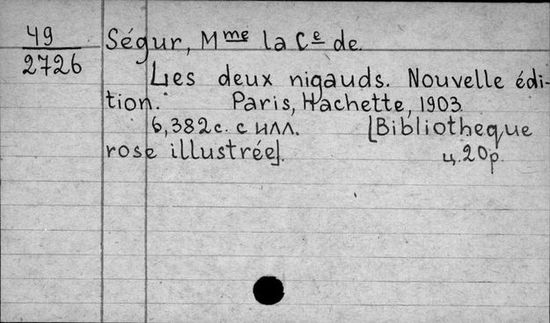 49
2726
Ségur, Mme la Ce de.
Les deux nigauds. Nouvelle édi-
tion. Paris, Hachette, 1903
6, 382с. с илл. [Bibliotheque
rose illustrée].
ц. 20р.